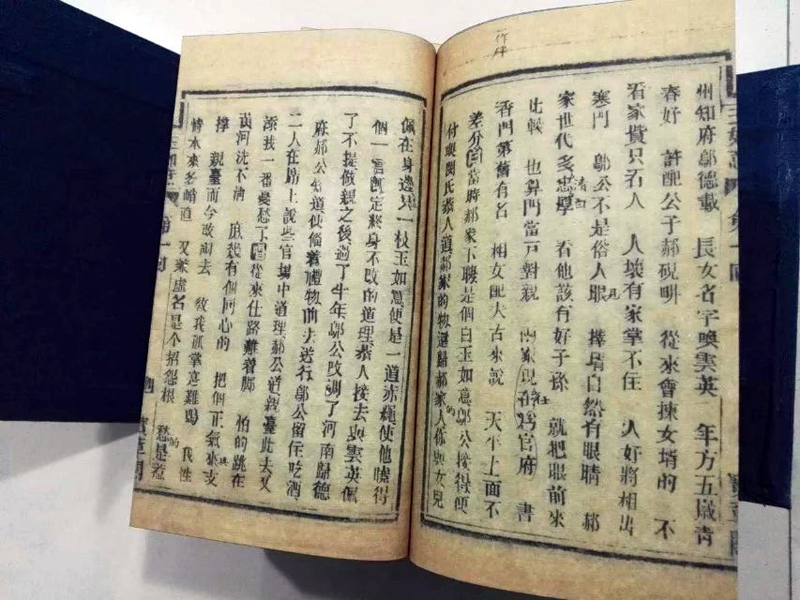 州知府鄔德載 長女名字喚雲英 年方五歲青
春好 許配公子郝硯耕 從來會揀女壻的 不
看家貲只看人 人壞有家掌不住 人好將相出
寒門 鄔公不是俗人眼 擇壻自然有眼睛 郝
家世代多忠厚 看他該有好子孫 就把眼前來
比較 也算門當戶對親 兩家現在為官府 書
香門第舊有名 相女配夫古來說 天平上面不
差分 當時郝家下聘是個白玉如意鄔公接得便
付與閔氏恭人道郝家的物還歸郝家人你與女兒
佩在身邊只一枝玉如意便是一道赤繩使他曉得
個一言既定終身不改的道理恭人接去與雲英佩
了不提做親之後過了半年鄔公改調了河南歸德
府郝公知道使備着禮物前去送行鄔公留住吃酒
二人在席上說些官場中道理郝公道親臺此去又
添我一番憂愁了 從來仕路難着腳 怕的跳在
黃河洗不清 幾有個同心的 把個正氣來支
撐 親臺而今改調去 教我孤掌意難鳴 我性
情本來多峭直 又兼虛名是個招怨根 愁是
玉如意 第一回 四